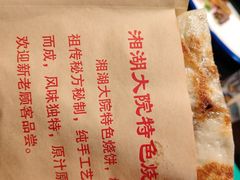 湘湖大院特色烧
湘湖大院特色烧饼，
祖传秘方秘制，纯手工艺
而成，风味独特，原汁原
欢迎新老顾客品尝。